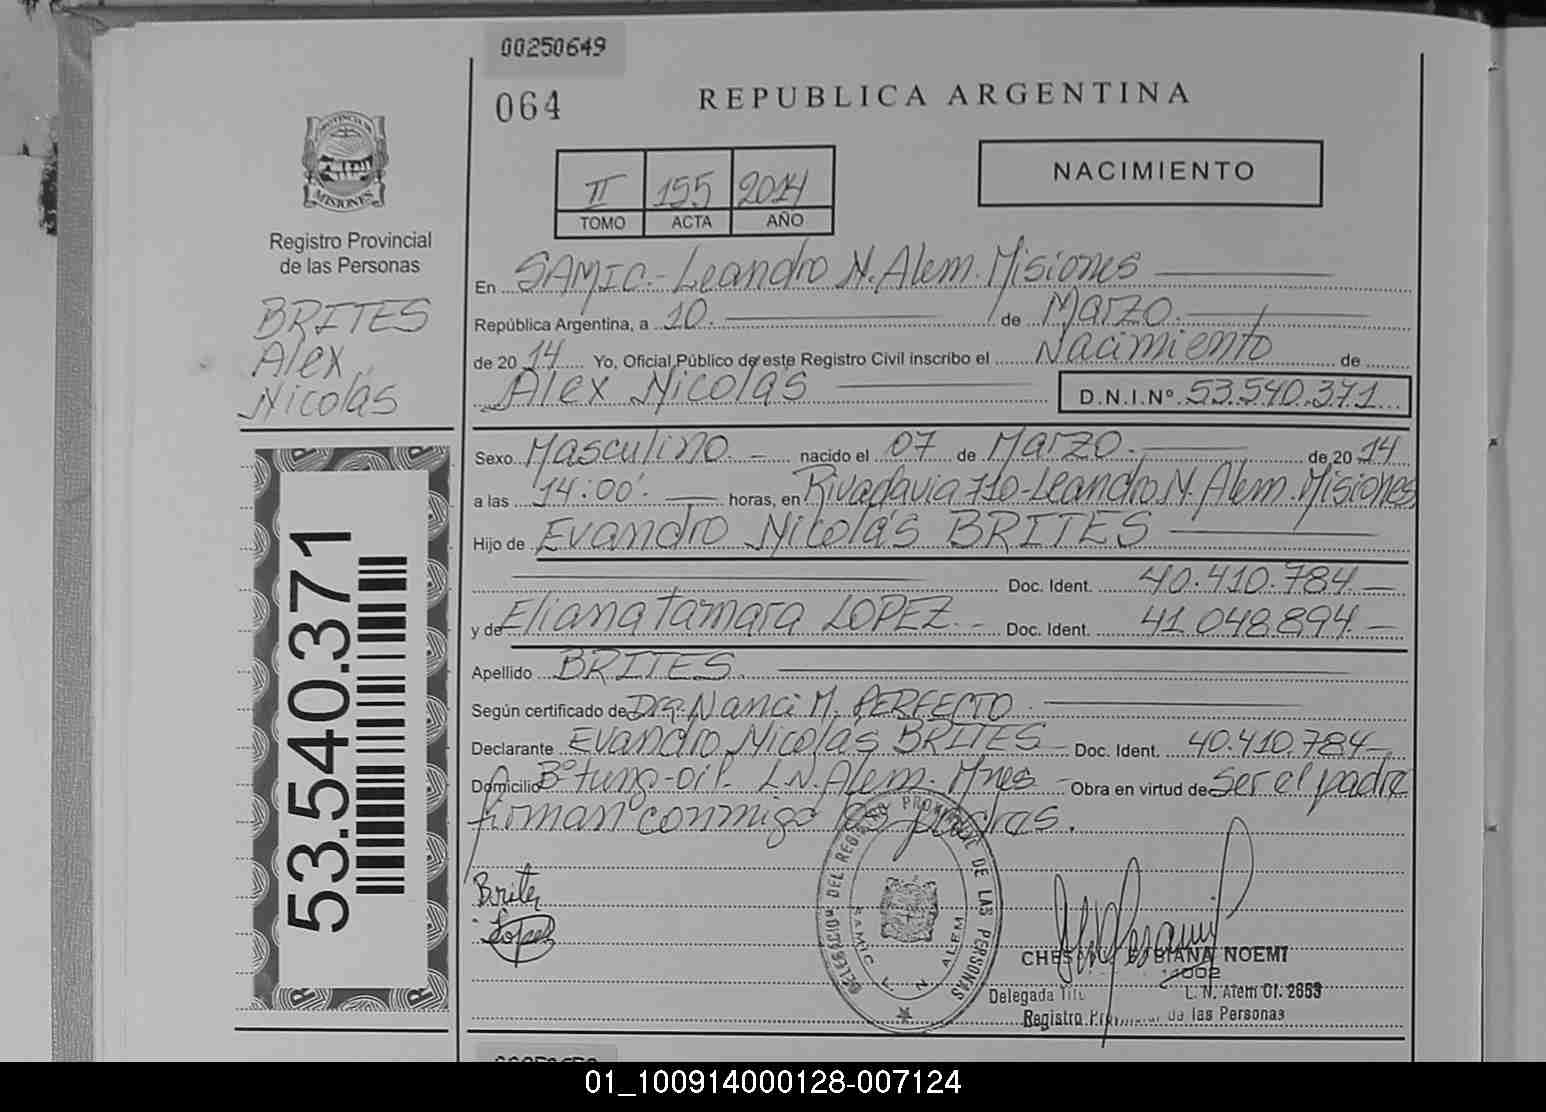 00250649
064
REPUBLICA ARGENTINA
PROVINCIA DE
MISIONES
Registro Provincial
de las Personas
BRITES
Alex
Nicolás
II 155 2014
TOMO ACTA AÑO
NACIMIENTO
En SAMIC.- Leandro N. Alem. Misiones
República Argentina, a 10. de Marzo.
de 2014 Yo, Oficial Público de este Registro Civil inscribo el Nacimiento de
Alex Nicolás D.N.I.Nº 53.540.371
Sexo Masculino. - nacido el 07 de Marzo. de 2014
a las 14:00'. horas, en Rivadavia 710-Leandro N. Alem. Misiones
Hijo de Evandro Nicolás BRITES
Doc. Ident. 40.410.784.-
y de Eliana Tamara LOPEZ.- Doc. Ident. 41.048.894.-
Apellido BRITES.
Según certificado de Dra. Nanci M. PERFECTO.
Declarante Evandro Nicolás BRITES Doc. Ident. 40.410.784-
Domicilio Bº L.N. Alem. Mnes - Obra en virtud de Ser el padre
firman conmigo los padres.
53.540.371
Brites
Lopez
DELEGACION DEL REGISTRO PROVINCIAL DE LAS PERSONAS
SAMIC L. N. ALEM
FABIANA NOEMI
1002
Delegada L. N. Alem Of. 2653
Registro Provincial de las Personas
01_100914000128-007124